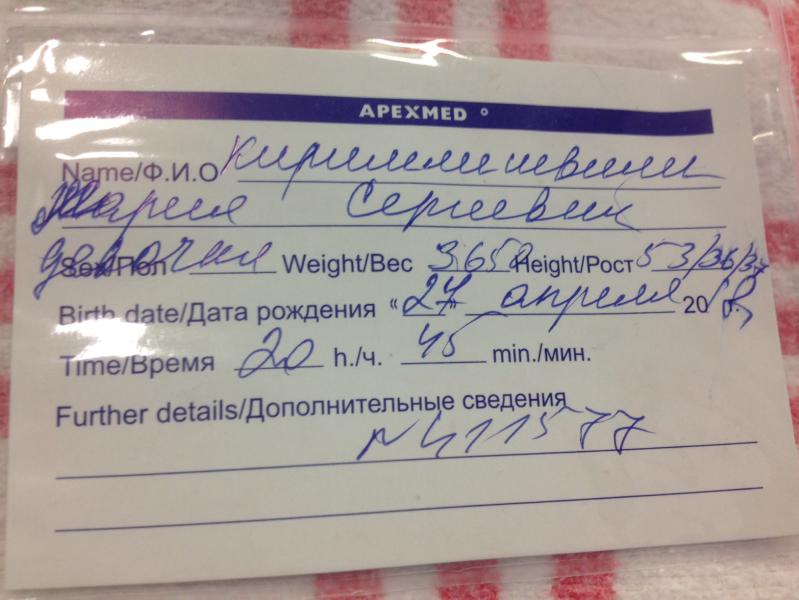 APEXMED
Name/Ф.И.О
Мария
девочка Sex/Пол Weight/Вес 3650 Height/Рост 53/36/37
Birth date/Дата рождения “27” апреля 2018 г.
Time/Время 20 h./ч. 45 min./мин.
Further details/Дополнительные сведения
N 411577